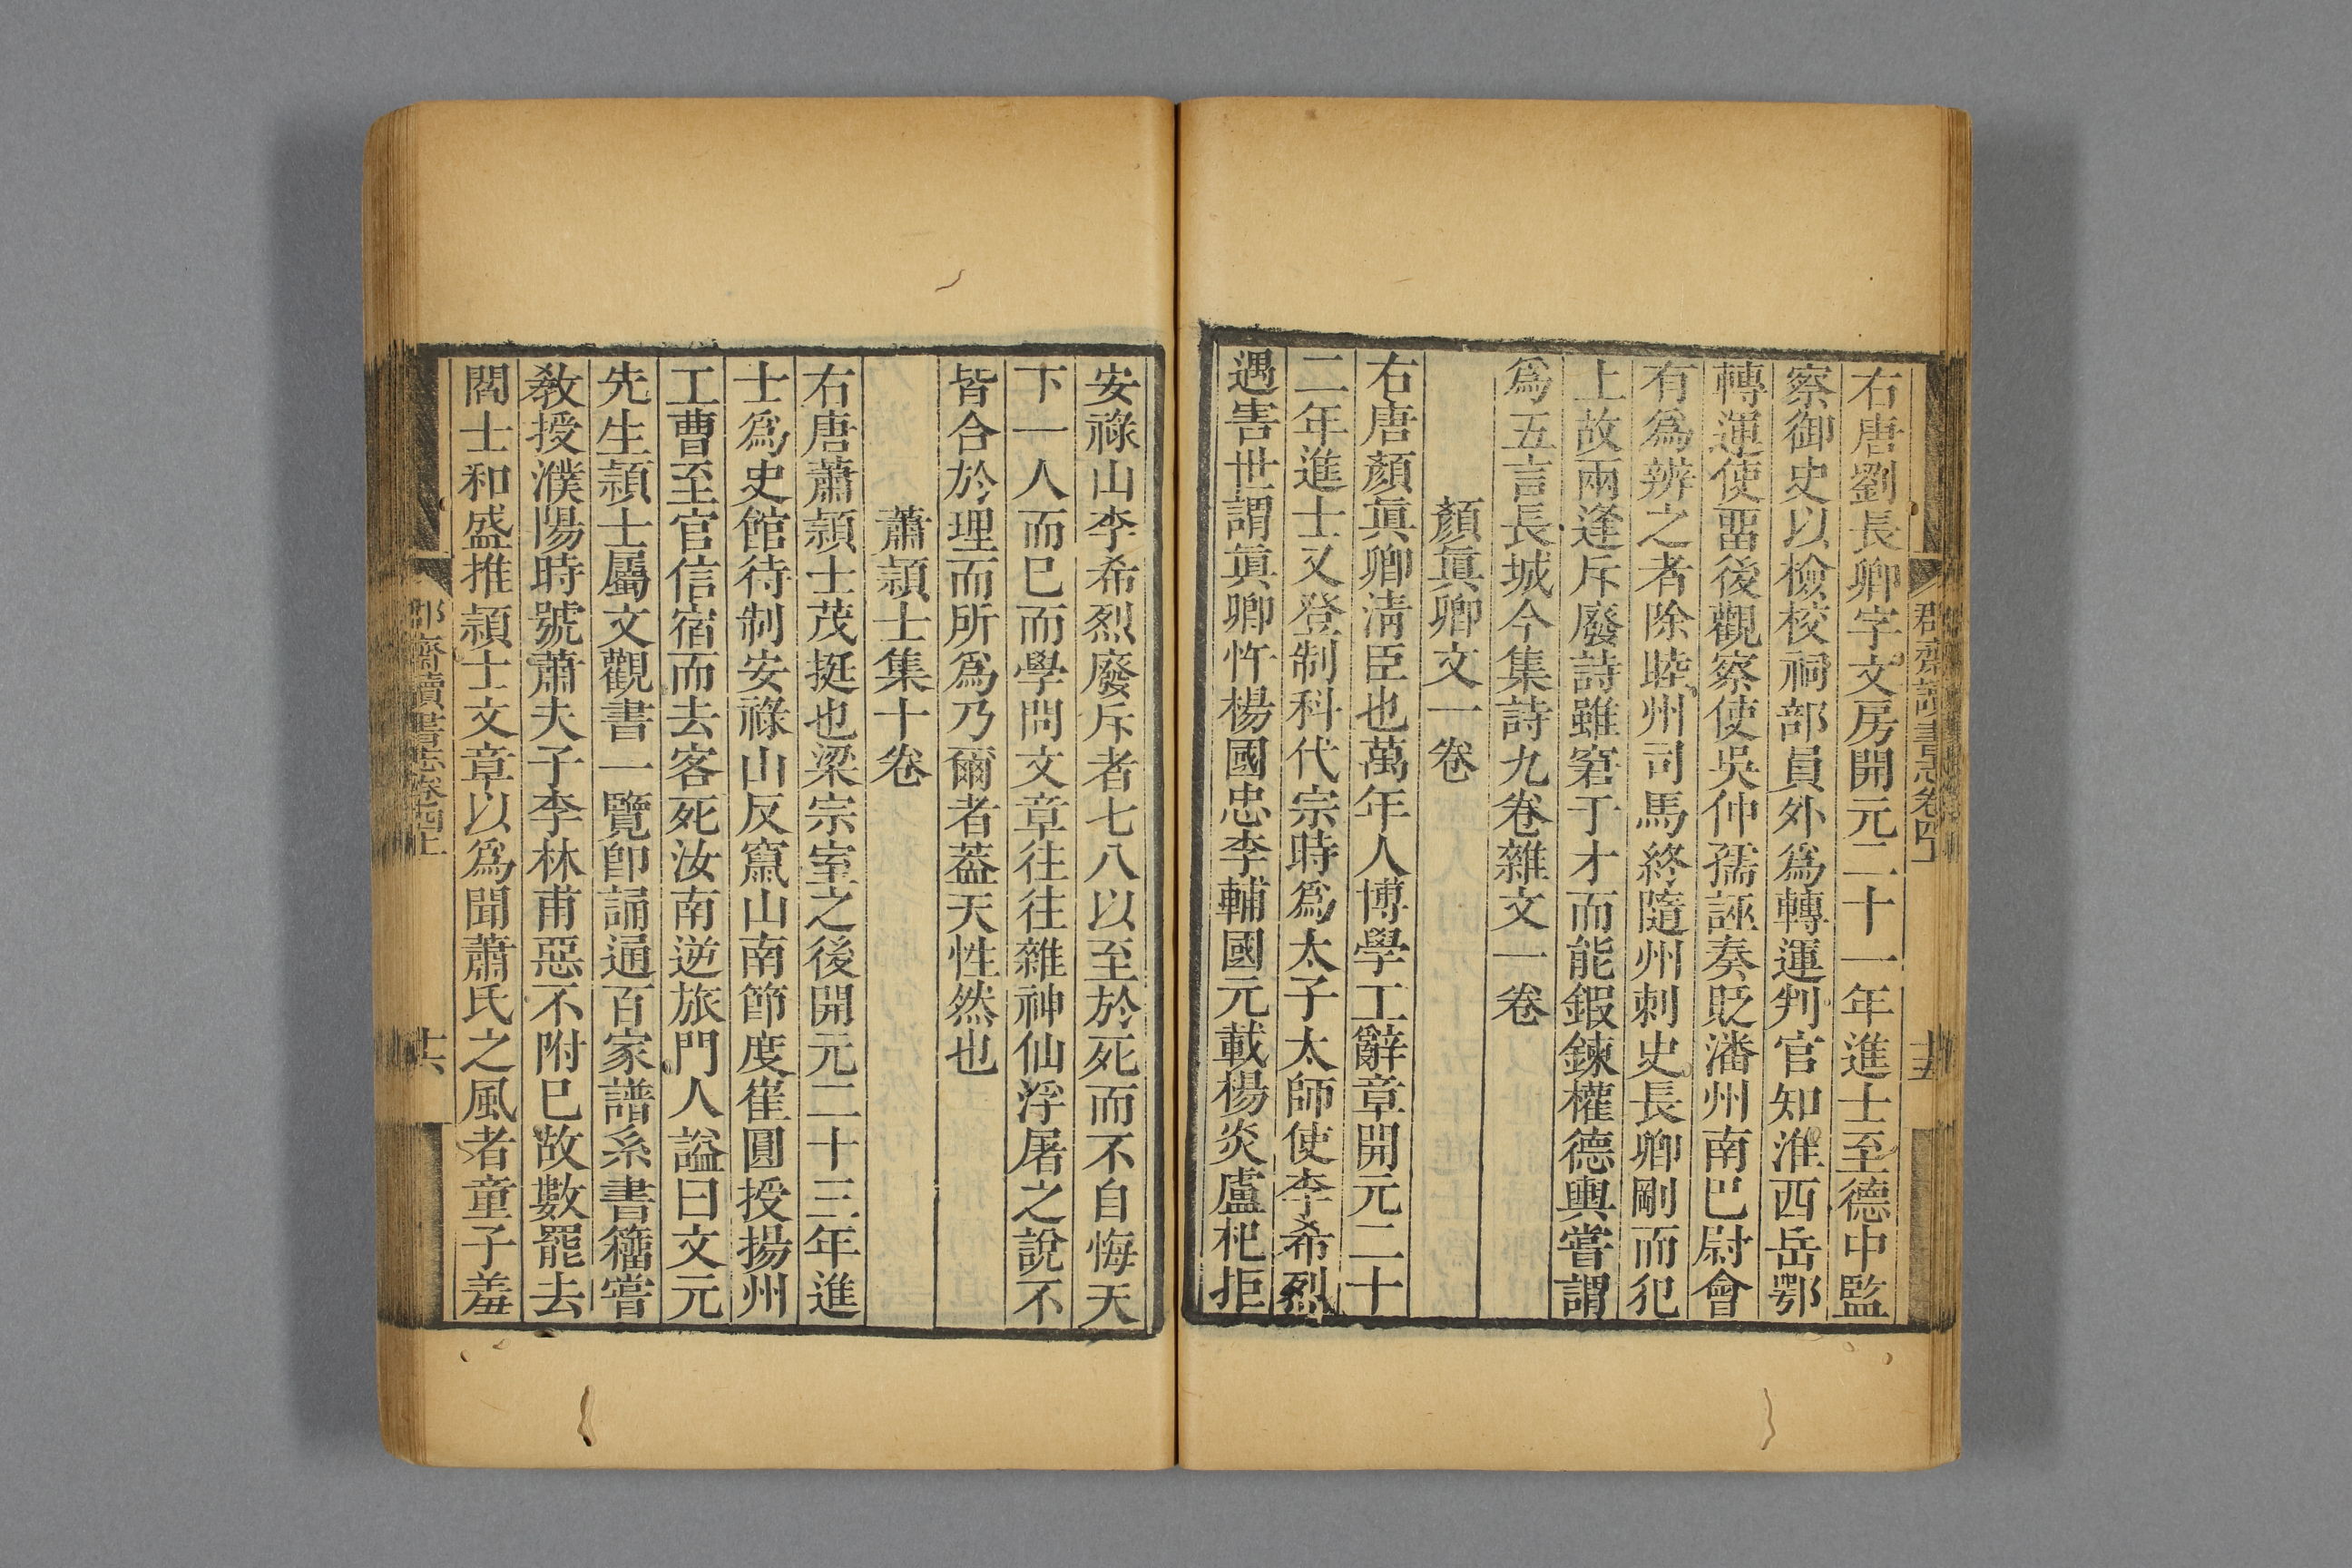 右唐劉長卿字文房開元二十一年進士至德中監
察御史以檢校祠部員外爲轉運判官知淮西岳鄂
轉運使畱後觀察使吳仲孺誣奏貶潘州南巴尉會
有爲辨之者除睦州司馬終隨州刺史長卿剛而犯
上故兩逢斥廢詩雖窘于才而能鍜鍊權德輿嘗謂
爲五言長城今集詩九卷雜文一卷
顏眞卿文一卷
右唐顏眞卿淸臣也萬年人博學工辭章開元二十
二年進士又登制科代宗時爲太子太師使李希烈
遇害世謂眞卿忤楊國忠李輔國元載楊炎盧杞拒
安祿山李希烈廢斥者七八以至於死而不自悔天
下一人而巳而學問文章往往雜神仙浮屠之說不
皆合於理而所爲乃爾者葢天性然也
蕭頴士集十卷
右唐蕭頴士茂挺也梁宗室之後開元二十三年進
士爲史館待制安祿山反竄山南節度崔圓授揚州
工曹至官信宿而去客死汝南逆旅門人謚曰文元
先生頴士屬文觀書一覽卽誦通百家譜系書籀嘗
敎授濮陽時號蕭夫子李林甫惡不附巳故數罷去
閻士和盛推頴士文章以爲聞蕭氏之風者童子羞
郡齋讀書志卷四上
十六